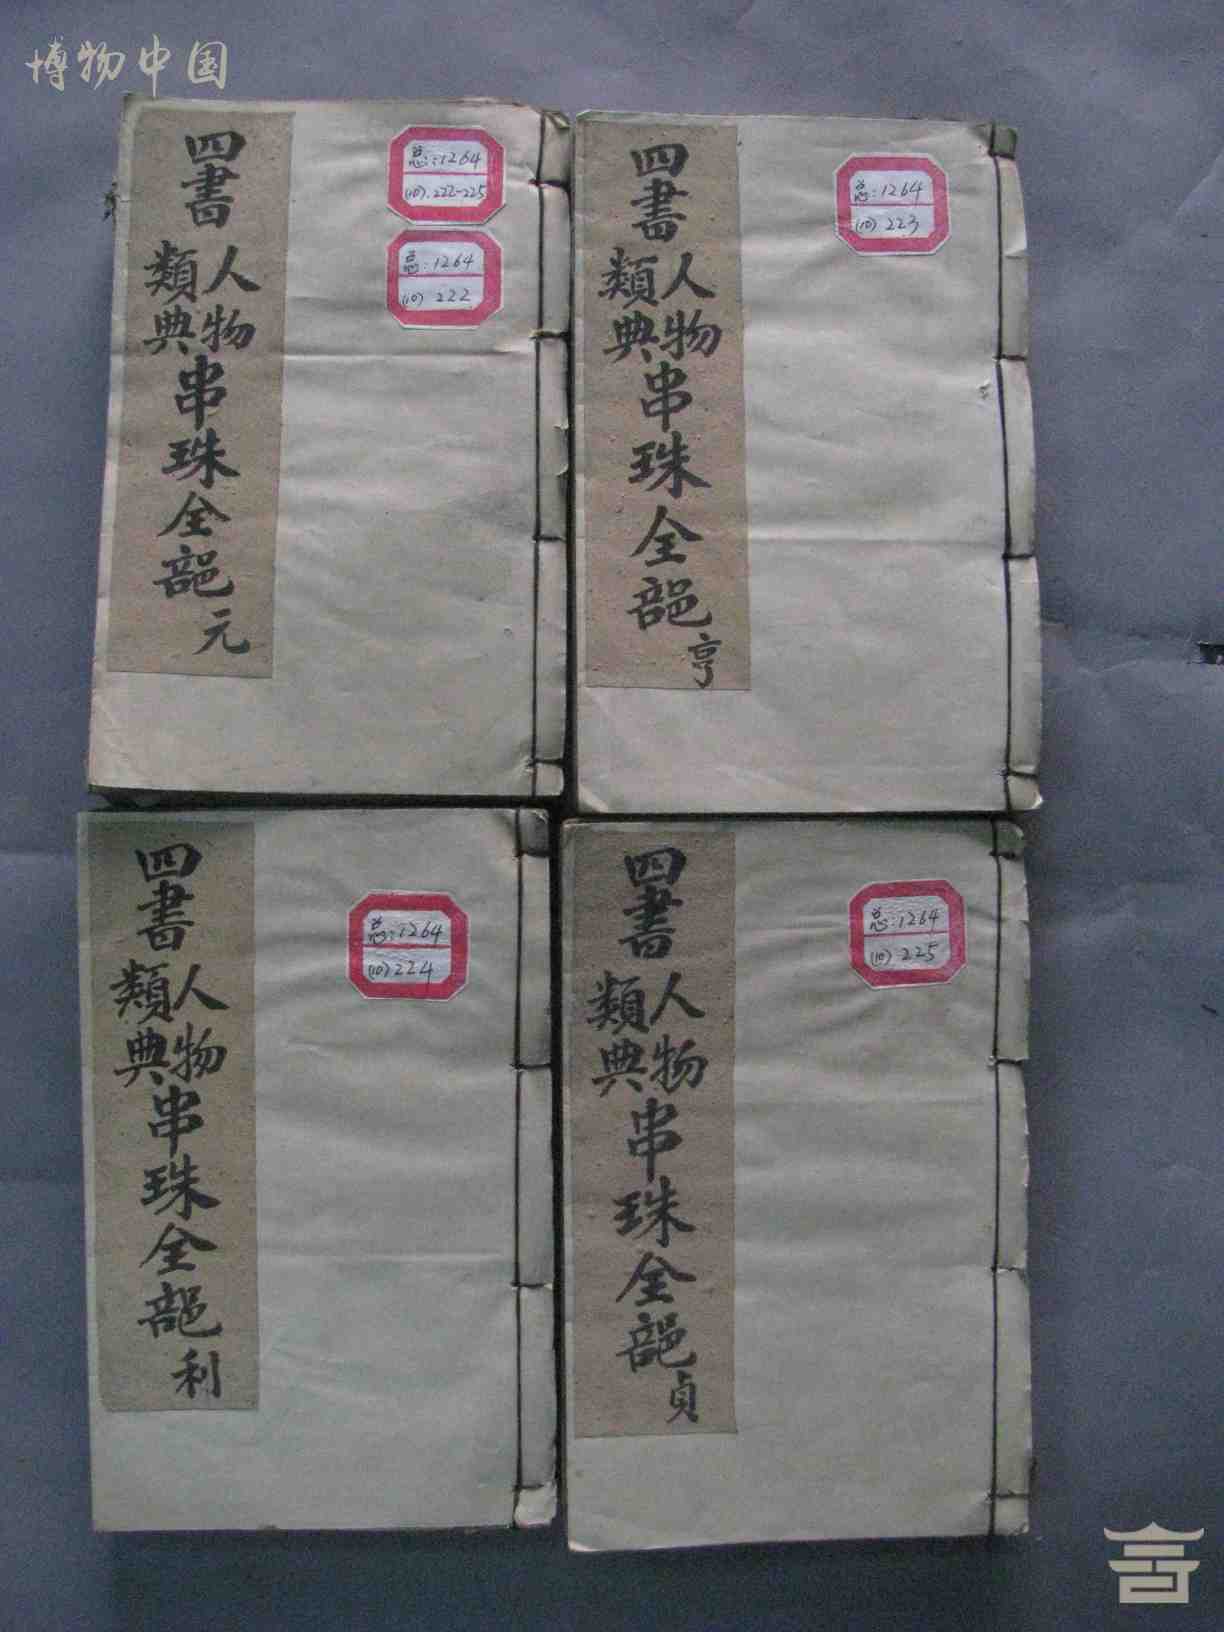 博物中国
四書
人物
類典
串珠全部
元
总:1264
(10).222-225
总:1264
(10) 222
四書
人物
類典
串珠全部
亨
总:1264
(10) 223
四書
人物
類典
串珠全部
利
总:1264
(10) 224
四書
人物
類典
串珠全部
貞
总:1264
(10) 225